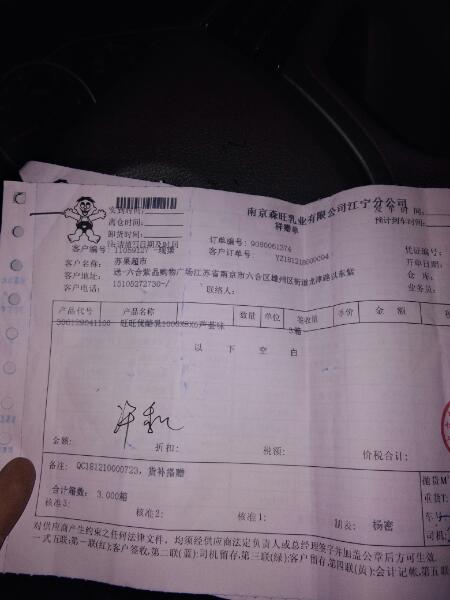 南京森旺乳业有限公司江宁分公司
样赠单
发车时间:
预计到车时间:
实到时间:
离仓时间:
卸货时间:
(请填写日期及时间)
客户编号: 11059127
客户名称: 苏果超市
客户地址: 送-六合紫晶购物广场江苏省南京市六合区雄州区街道龙津路以东紫
客户电话: 15105272730-/
联络人:
订单编号: 9080061374
客户订单号: YZ181218000094
凭证编号:
开单日期:
仓库:
业务员:
产品代号 产品名称 数量 单位 签收量 单价 金额 税
旺旺优酪乳 芦荟味 3箱
以下空白
金额: 折扣: 税额: 价税合计:
备注: QC181210000723, 货补搭赠
合计箱数: 3.000箱
核准3: 核准2: 核准1: 制表: 杨密
抛货M
重货T:
车号
司机:
对供应商产生约束之任何法律文件, 均须经供应商法定负责人或总经理签字并加盖公章后方可生效
一式五联:第一联(红):客户签收,第二联(蓝):司机留存,第三联(绿):客户留存,第四联(黄):会计记帐,第五联